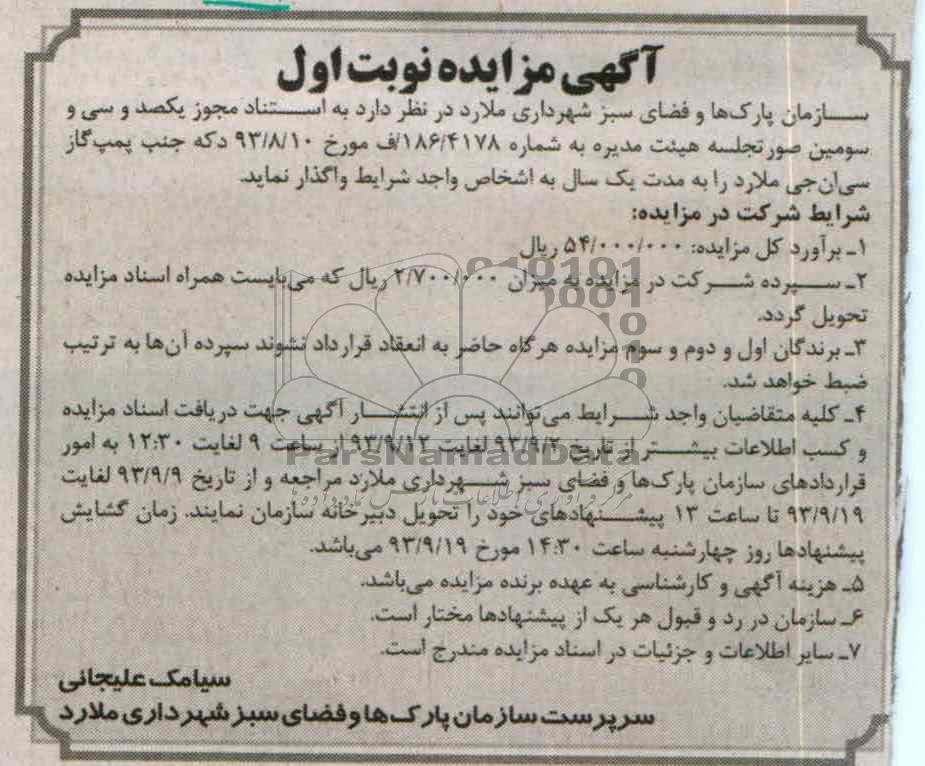 آگهی مزایده نوبت اول
سازمان پارک‌ها و فضای سبز شهرداری ملارد در نظر دارد به استناد مجوز یکصد و سی و
سومین صورتجلسه هیئت مدیره به شماره ۱۸۶/۴۱۷۸/ف مورخ ۹۳/۸/۱۰ دکه جنب پمپ گاز
سی‌ان‌جی ملارد را به مدت یک سال به اشخاص واجد شرایط واگذار نماید.
شرایط شرکت در مزایده:
۱ـ برآورد کل مزایده: ۵۴/۰۰۰/۰۰۰ ریال
۲ـ سپرده شرکت در مزایده به میزان ۲/۷۰۰/۰۰۰ ریال که می‌بایست همراه اسناد مزایده
تحویل گردد.
۳ـ برندگان اول و دوم و سوم مزایده هرگاه حاضر به انعقاد قرارداد نشوند سپرده آن‌ها به ترتیب
ضبط خواهد شد.
۴ـ کلیه متقاضیان واجد شرایط می‌توانند پس از انتشار آگهی جهت دریافت اسناد مزایده
و کسب اطلاعات بیشتر از تاریخ ۹۳/۹/۲ لغایت ۹۳/۹/۱۲ از ساعت ۹ لغایت ۱۲:۳۰ به امور
قراردادهای سازمان پارک‌ها و فضای سبز شهرداری ملارد مراجعه و از تاریخ ۹۳/۹/۹ لغایت
۹۳/۹/۱۹ تا ساعت ۱۳ پیشنهادهای خود را تحویل دبیرخانه سازمان نمایند. زمان گشایش
پیشنهادها روز چهارشنبه ساعت ۱۴:۳۰ مورخ ۹۳/۹/۱۹ می‌باشد.
۵ـ هزینه آگهی و کارشناسی به عهده برنده مزایده می‌باشد.
۶ـ سازمان در رد و قبول هر یک از پیشنهادها مختار است.
۷ـ سایر اطلاعات و جزئیات در اسناد مزایده مندرج است.
سیامک علیجانی
سرپرست سازمان پارک‌ها و فضای سبز شهرداری ملارد
ParsNamadData